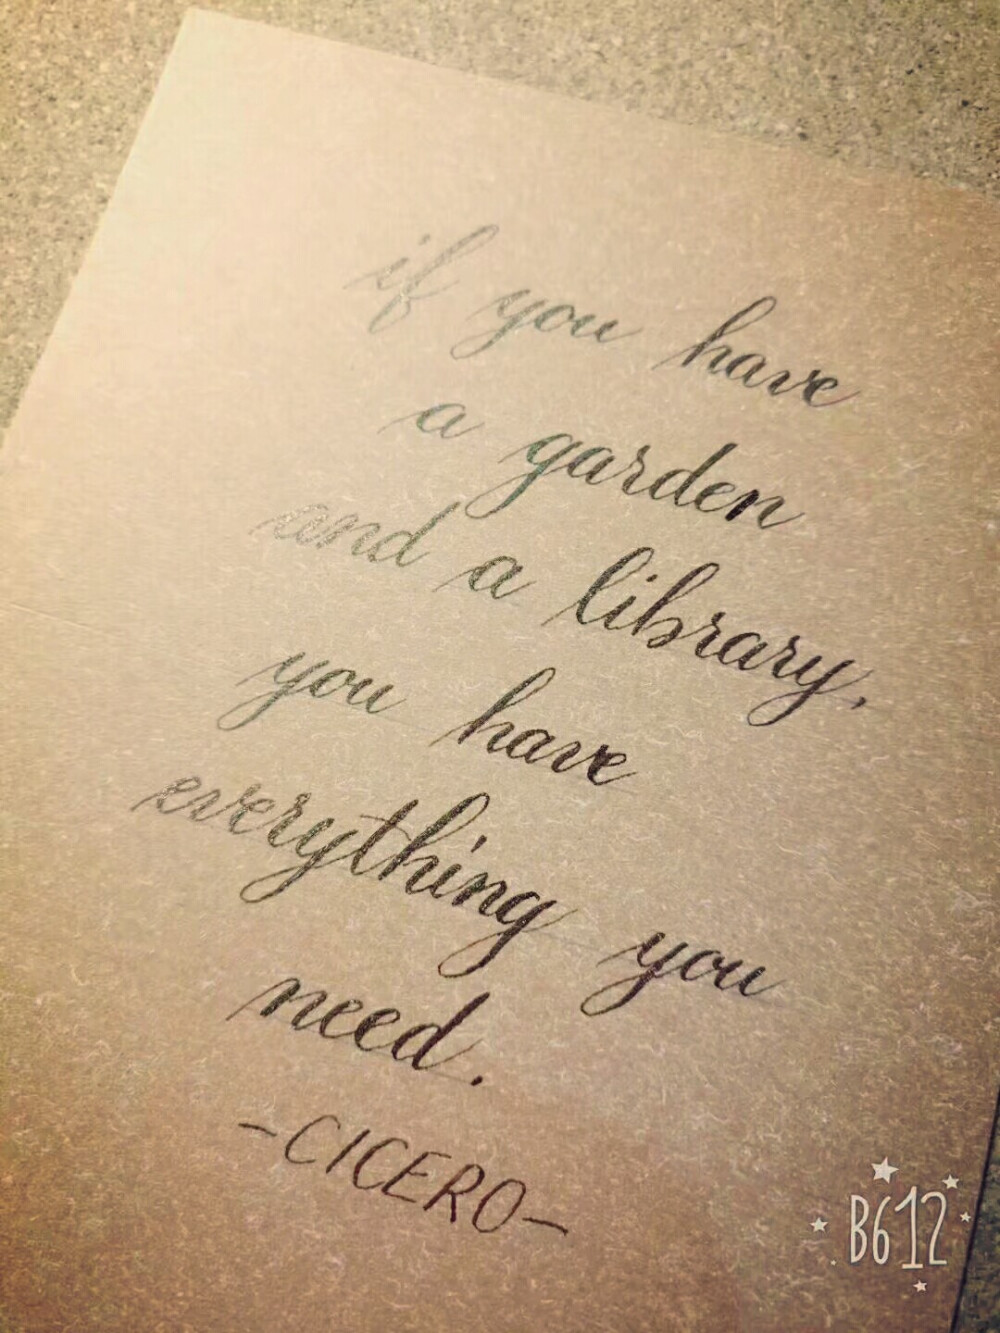 if you have
a garden
and a library,
you have
everything you
need.
-CICERO-
B612